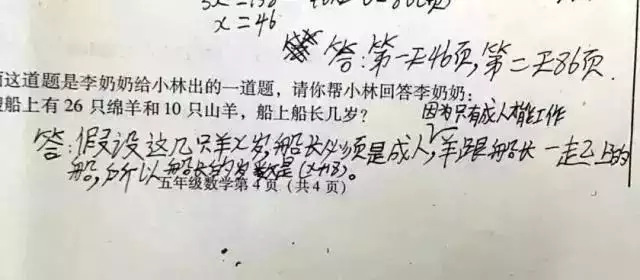 x=46
答:第一天46页,第二天86页.
这道题是李奶奶给小林出的一道题，请你帮小林回答李奶奶:
船上有 26 只绵羊和 10 只山羊，船上船长几岁？
因为只有成人才能工作
答:假设这几只羊x岁,船长必须是成人,羊跟船长一起上的
船,所以船长的岁数是(x+18)。
五年级数学第 4 页（共 4 页）